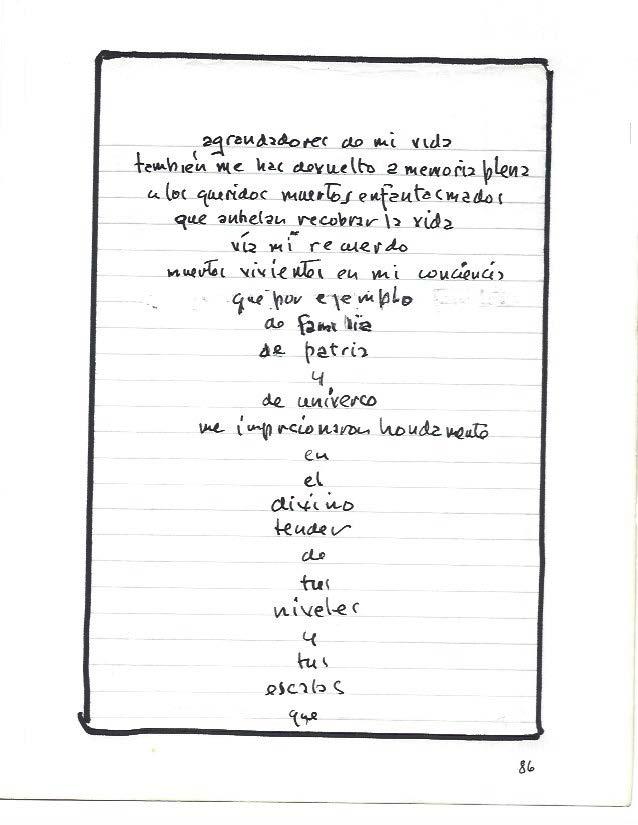 agrandadores de mi vida
también me has devuelto a memoria plena
a los queridos muertos enfantasmados
que anhelan recobrar la vida
vía mi recuerdo
muertos vivientes en mi conciencia
que por ejemplo
de familia
de patria
y
de universo
me impresionaron hondamente
en
el
divino
tender
de
tus
niveles
y
tus
escalas
que
86